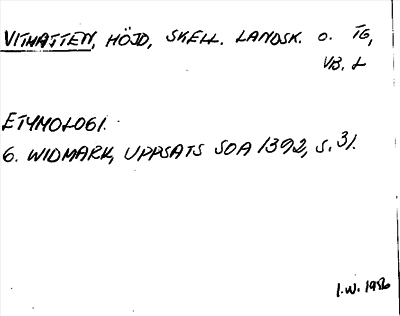 VITHATTEN, HÖJD, SKELL. LANDSK. O. TG,
VB. L
ETYMOLOGI.
G. WIDMARK, UPPSATS SOA 1392, S. 31.
I.W. 1986